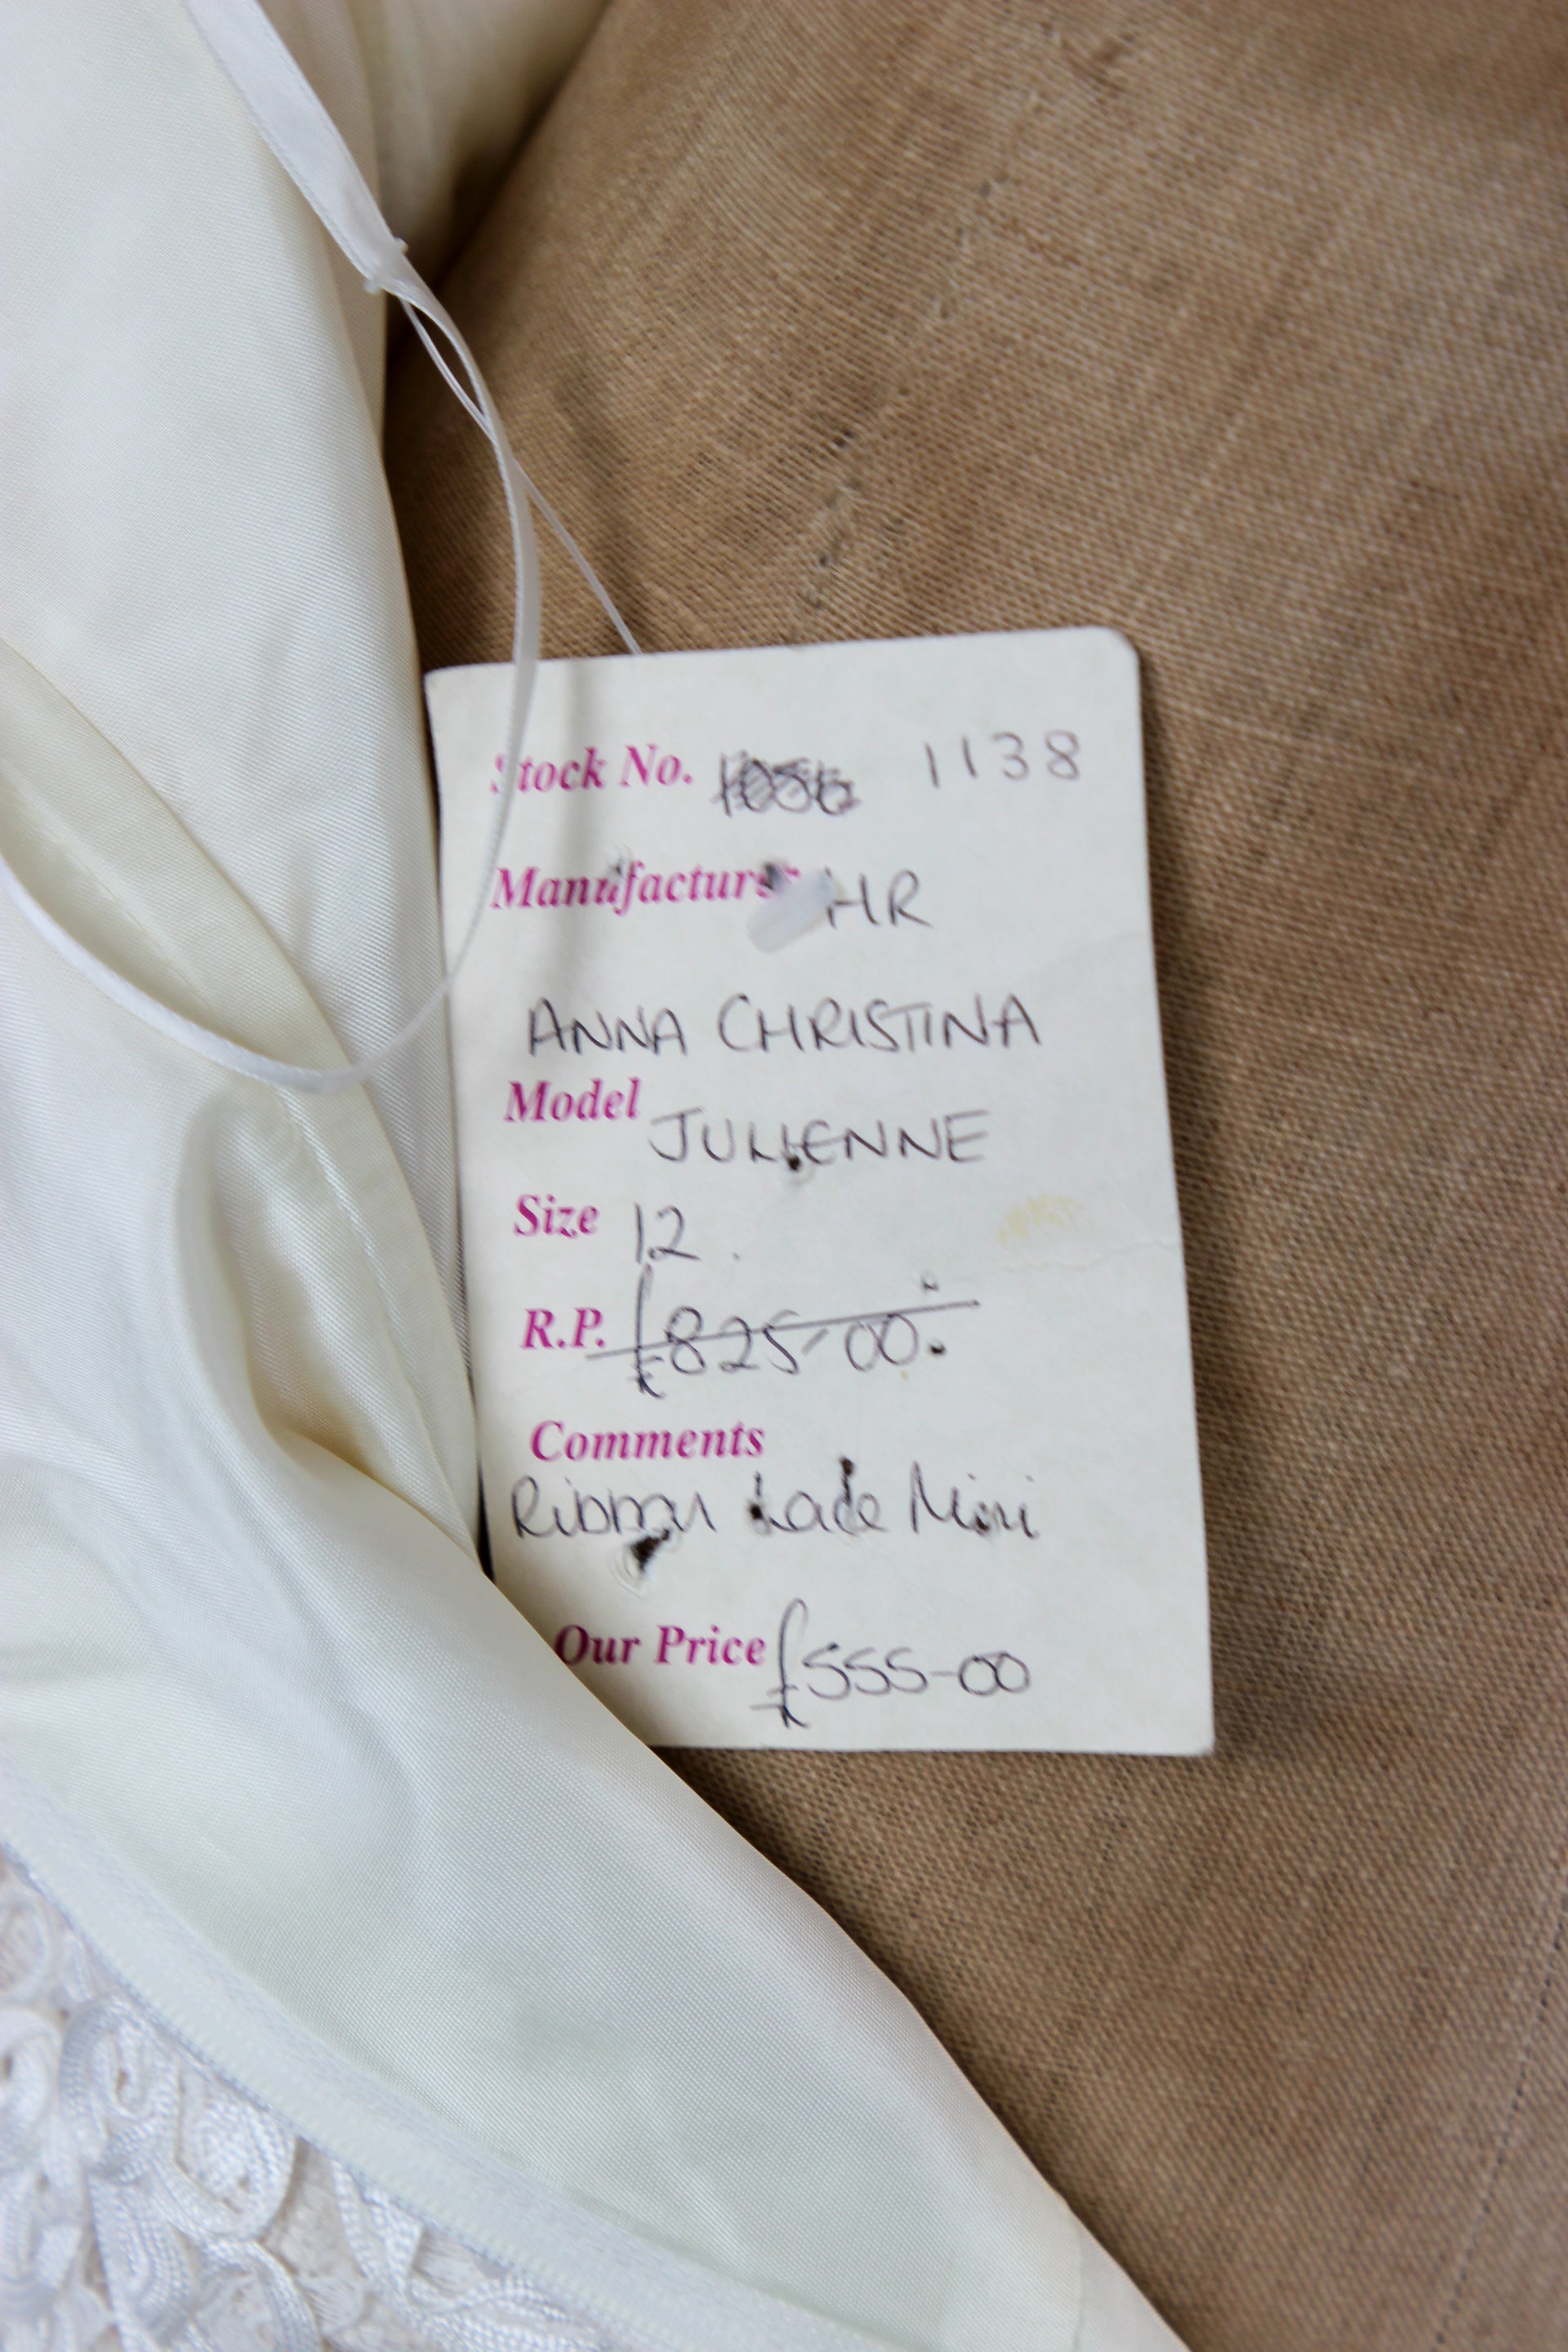 Stock No. 1138
Manufacturer HR
ANNA CHRISTINA
Model JULIENNE
Size 12.
R.P. £825-00.
Comments
Ribbon Lace Mini
Our Price £555-00